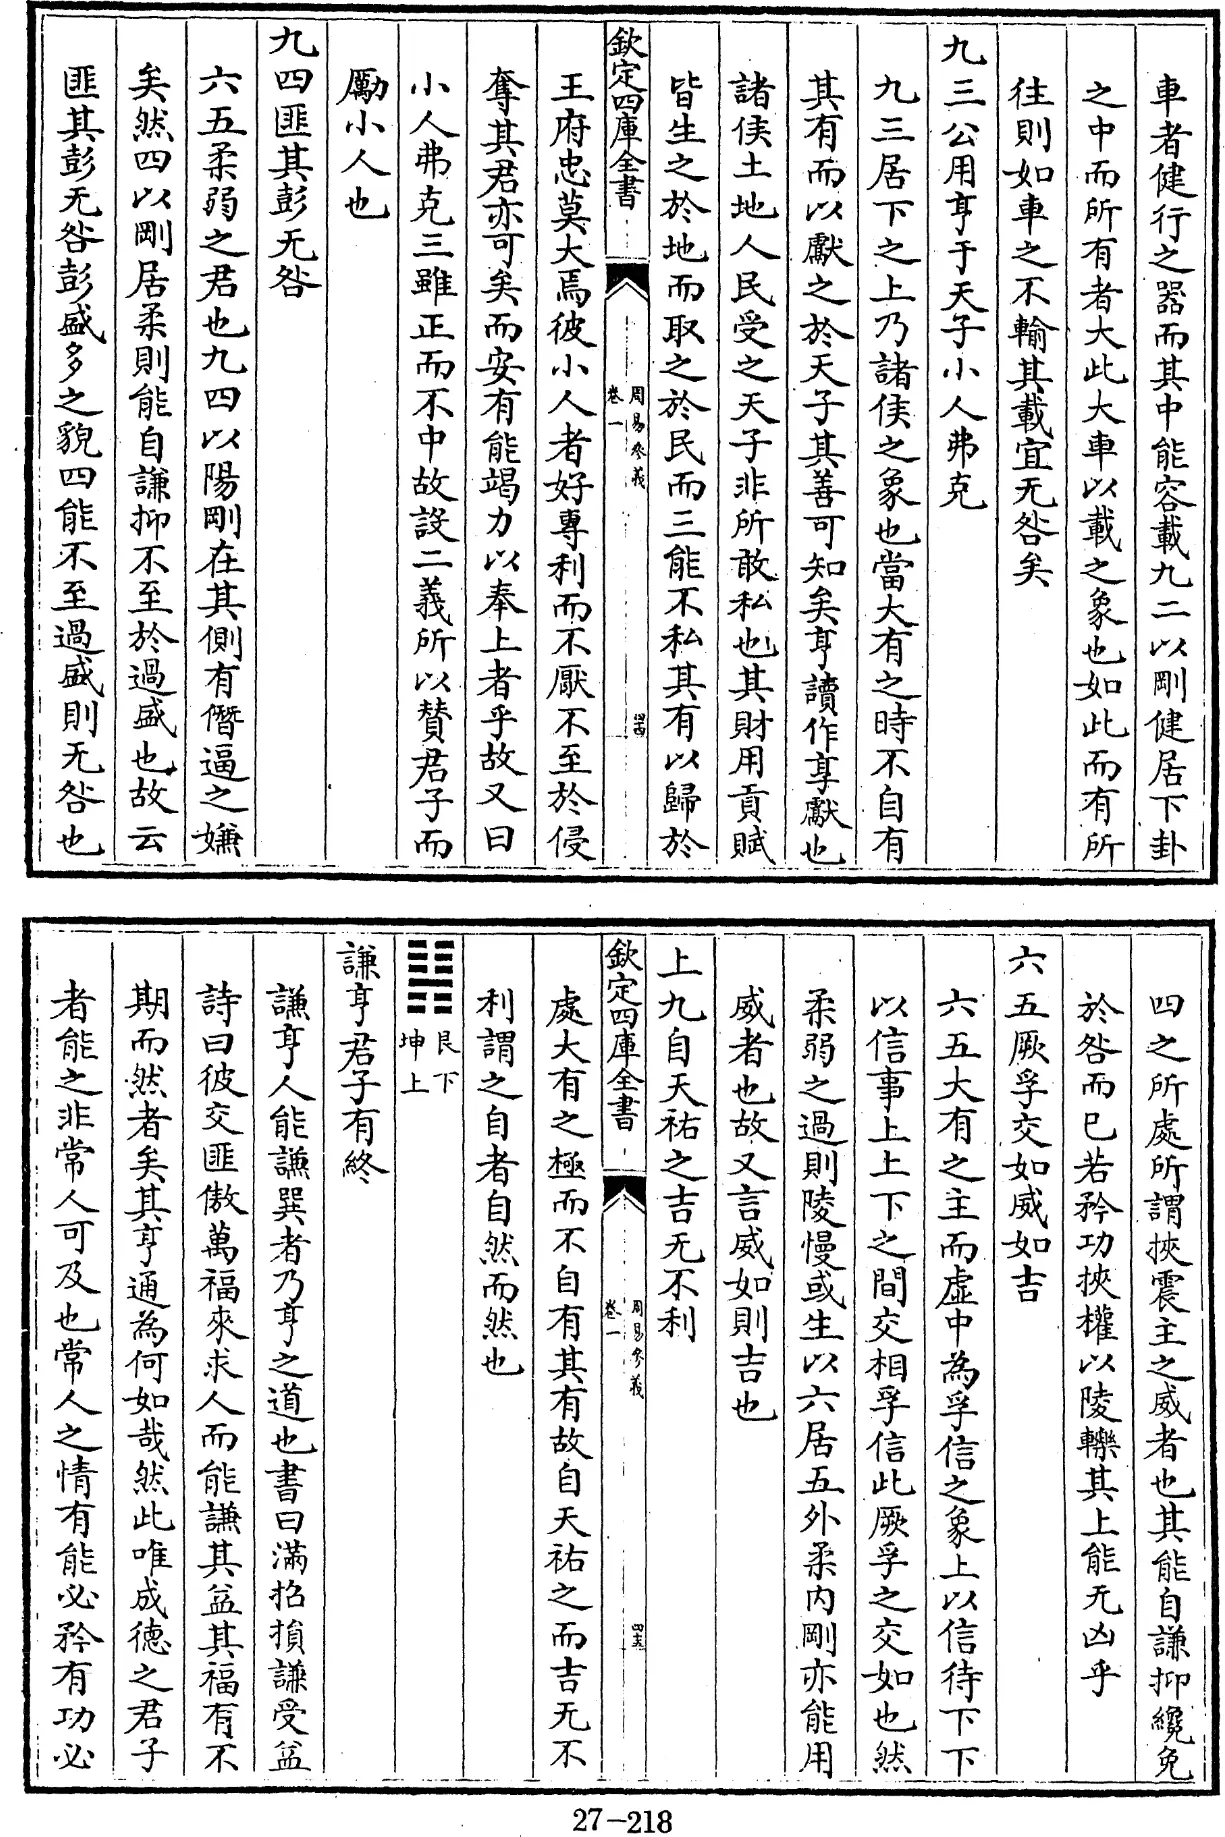 車者健行之器而其中能容載九二以剛健居下卦
之中而所有者大此大車以載之象也如此而有所
往則如車之不輸其載宜无咎矣
九三公用亨于天子小人弗克
九三居下之上乃諸侯之象也當大有之時不自有
其有而以獻之於天子其善可知矣亨讀作享獻也
諸侯土地人民受之天子非所敢私也其財用貢賦
皆生之於地而取之於民而三能不私其有以歸於
欽定四庫全書
周易參義
卷一
四
王府忠莫大焉彼小人者好專利而不厭不至於侵
奪其君亦可矣而安有能竭力以奉上者乎故又曰
小人弗克三雖正而不中故設二義所以贊君子而
勵小人也
九四匪其彭无咎
六五柔弱之君也九四以陽剛在其側有僭逼之嫌
矣然四以剛居柔則能自謙抑不至於過盛也故云
匪其彭无咎彭盛多之貌四能不至過盛則无咎也
四之所處所謂挾震主之威者也其能自謙抑纔免
於咎而已若矜功挾權以陵轢其上能无凶乎
六五厥孚交如威如吉
六五大有之主而虛中為孚信之象上以信待下下
以信事上上下之間交相孚信此厥孚之交如也然
柔弱之過則陵慢或生以六居五外柔内剛亦能用
威者也故又言威如則吉也
上九自天祐之吉无不利
欽定四庫全書
周易參義
卷一
處大有之極而不自有其有故自天祐之而吉无不
利謂之自者自然而然也
䷎
艮下
坤上
謙亨君子有終
謙亨人能謙巽者乃亨之道也書曰滿招損謙受益
詩曰彼交匪傲萬福來求人而能謙其益其福有不
期而然者矣其亨通為何如哉然此唯成德之君子
者能之非常人可及也常人之情有能必矜有功必
27-218